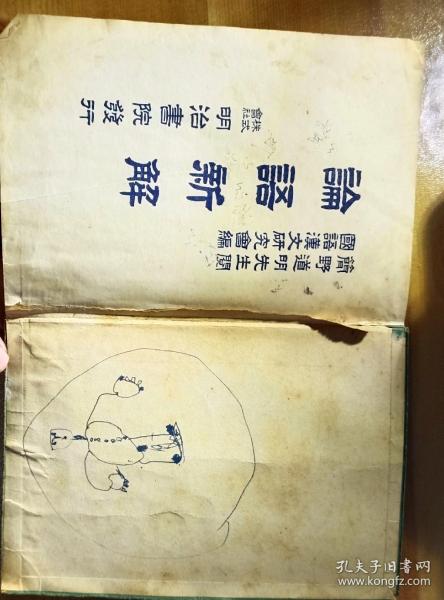 簡野道明先生閱
國語漢文研究會編
論語新解
株式會社 明治書院發行
孔夫子旧书网
www.kongfz.com